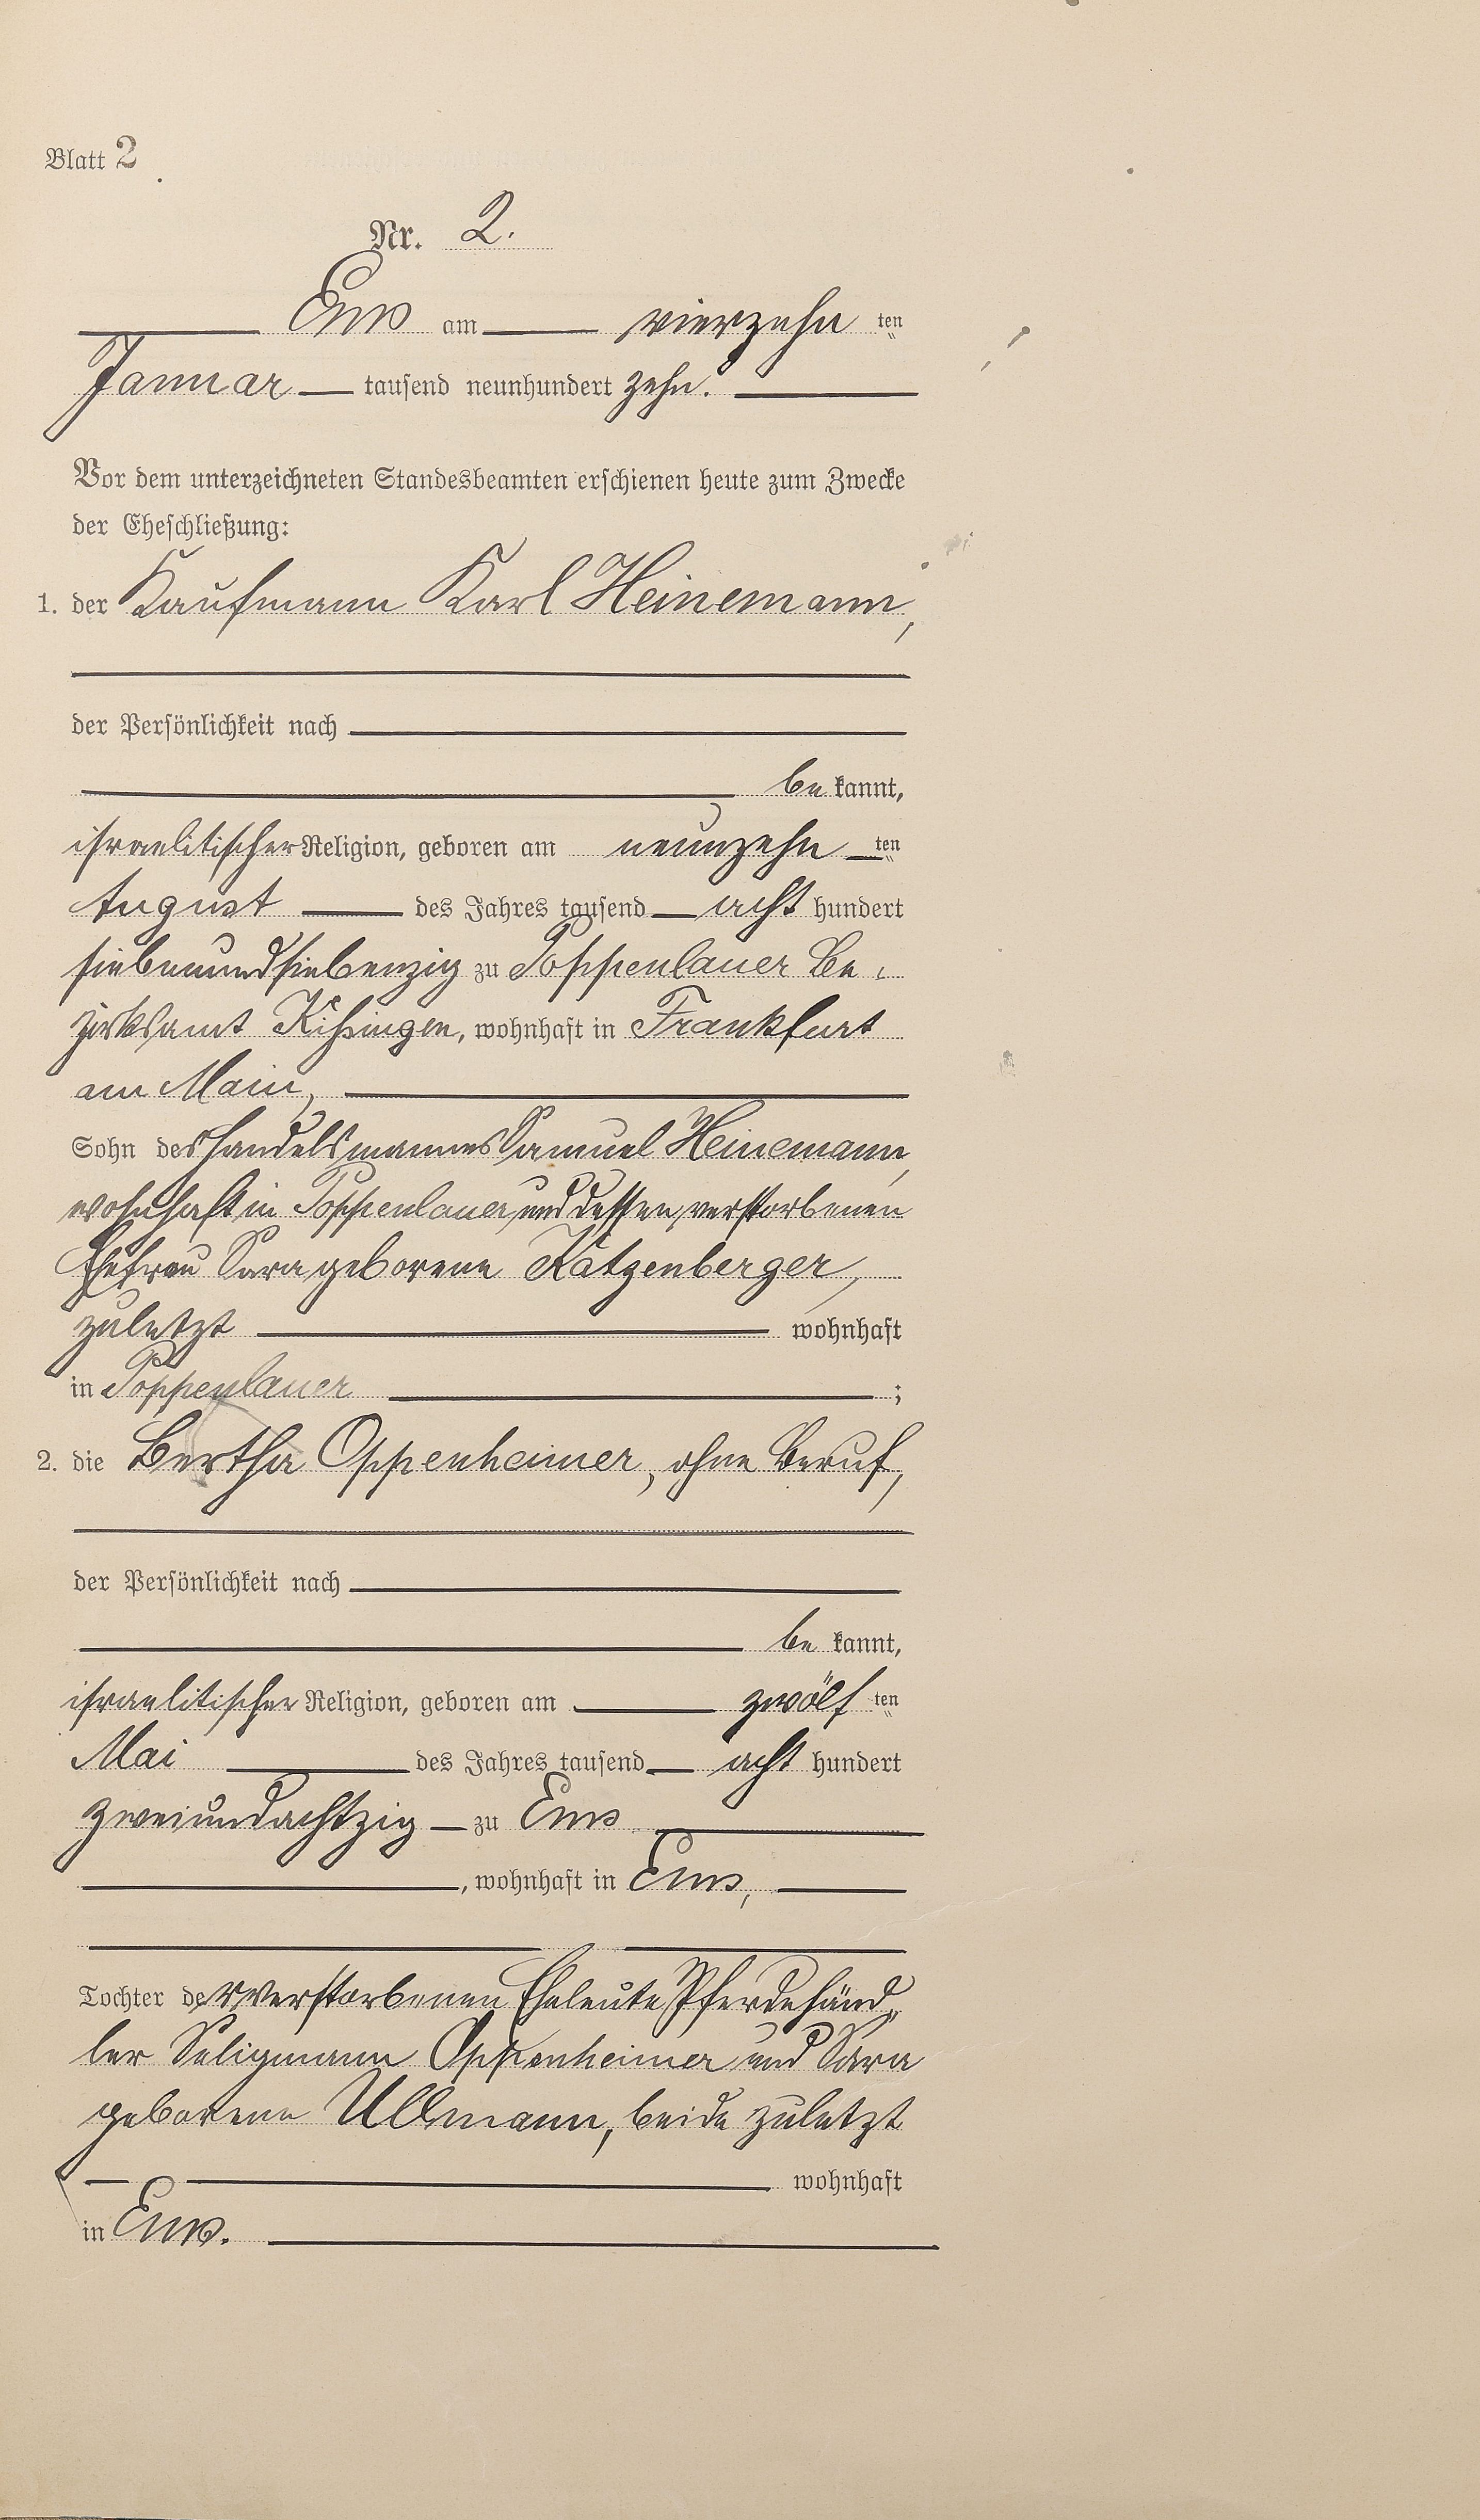 Blatt 2
Nr. 2.
Ems am vierzehn ten
Januar tausend neunhundert zehn.
Vor dem unterzeichneten Standesbeamten erschienen heute zum Zwecke
der Eheschließung:
1. der Kaufmann Karl Heinemann,
der Persönlichkeit nach
be kannt,
israelitischer Religion, geboren am neunzehn ten
August des Jahres tausend acht hundert
siebenundsiebenzig zu Poppenlauer Be-
zirksamt Kissingen, wohnhaft in Frankfurt
am Main,
Sohn des Handelsmannes Samuel Heinemann,
wohnhaft in Poppenlauer und dessen verstorbenen
Ehefrau Sara geborene Katzenberger,
zuletzt wohnhaft
in Poppenlauer ;
2. die Bertha Oppenheimer, ohne Beruf,
der Persönlichkeit nach
be kannt,
israelitischer Religion, geboren am zwölf ten
Mai des Jahres tausend acht hundert
zweiundachtzig zu Ems
, wohnhaft in Ems,
Tochter der verstorbenen Eheleute Pferdehänd-
ler Seligmann Oppenheimer und Sara
geborene Ullmann, beide zuletzt
wohnhaft
in Ems.